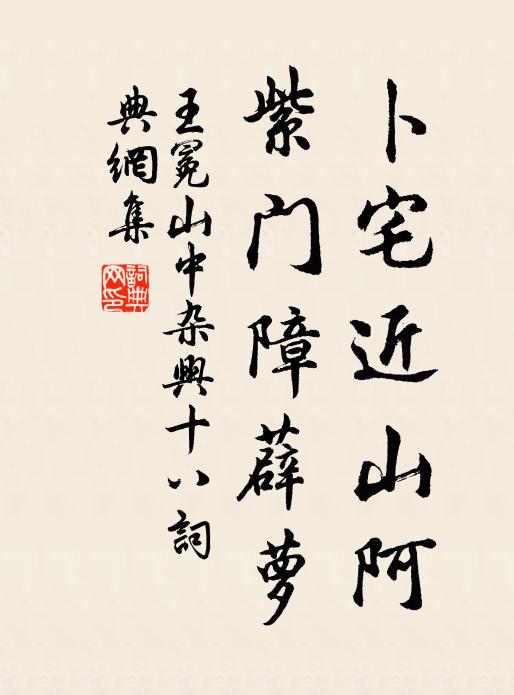 卜宅近山阿
紫门障薜萝
王冕山中杂興十八詞
典網集
詞典
网印